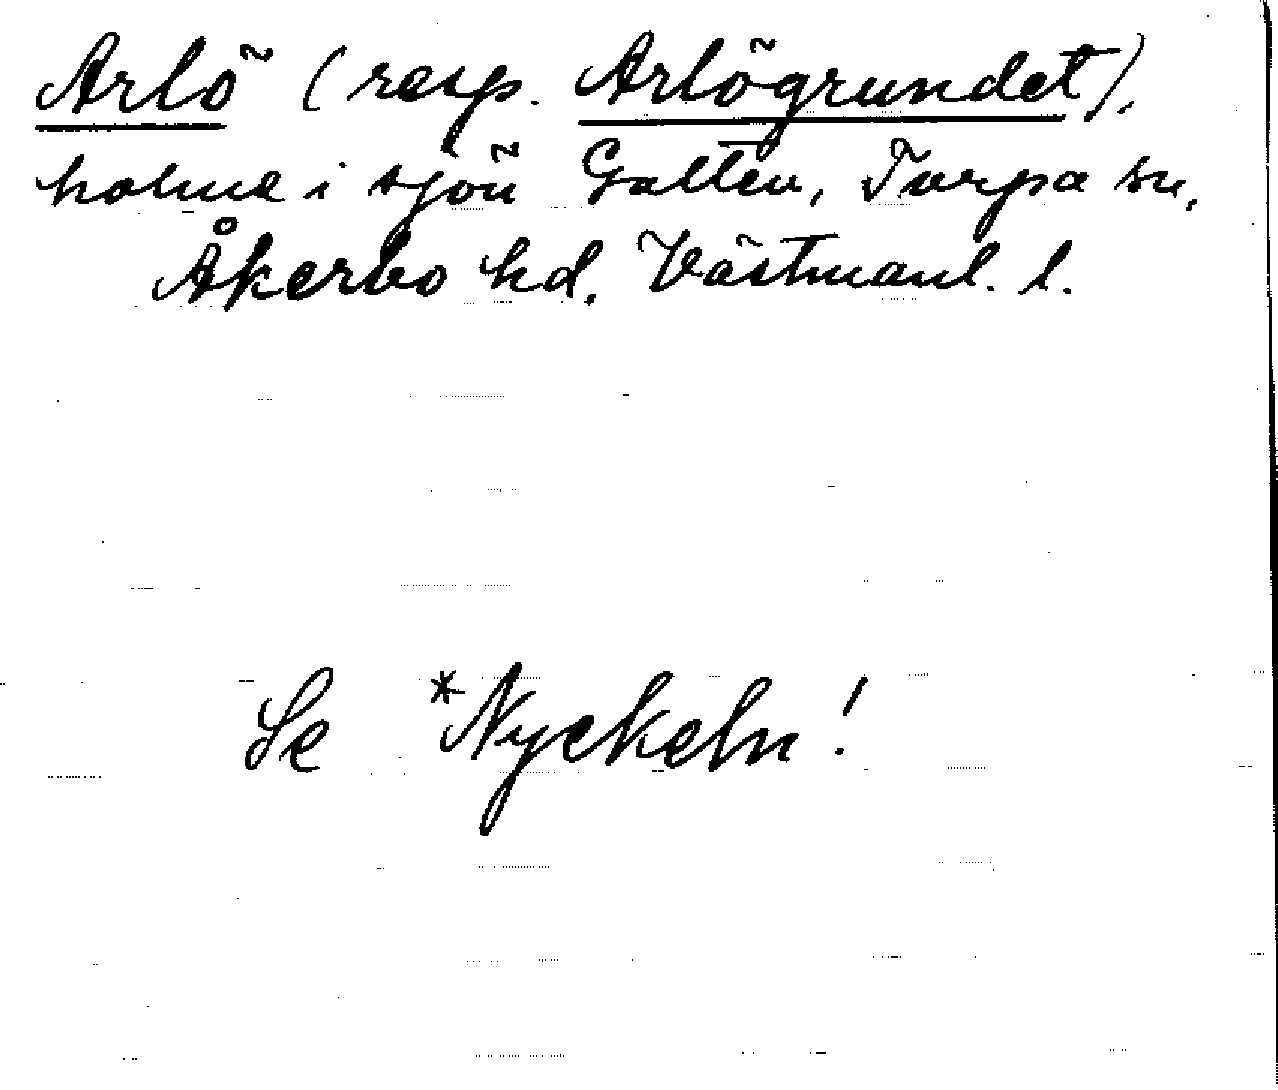 Arlö (resp. Arlögrundet),
holme i sjön Galten, Torpa sn,
Åkerbo hd. Västmanl. l.
Se *Nyckeln!